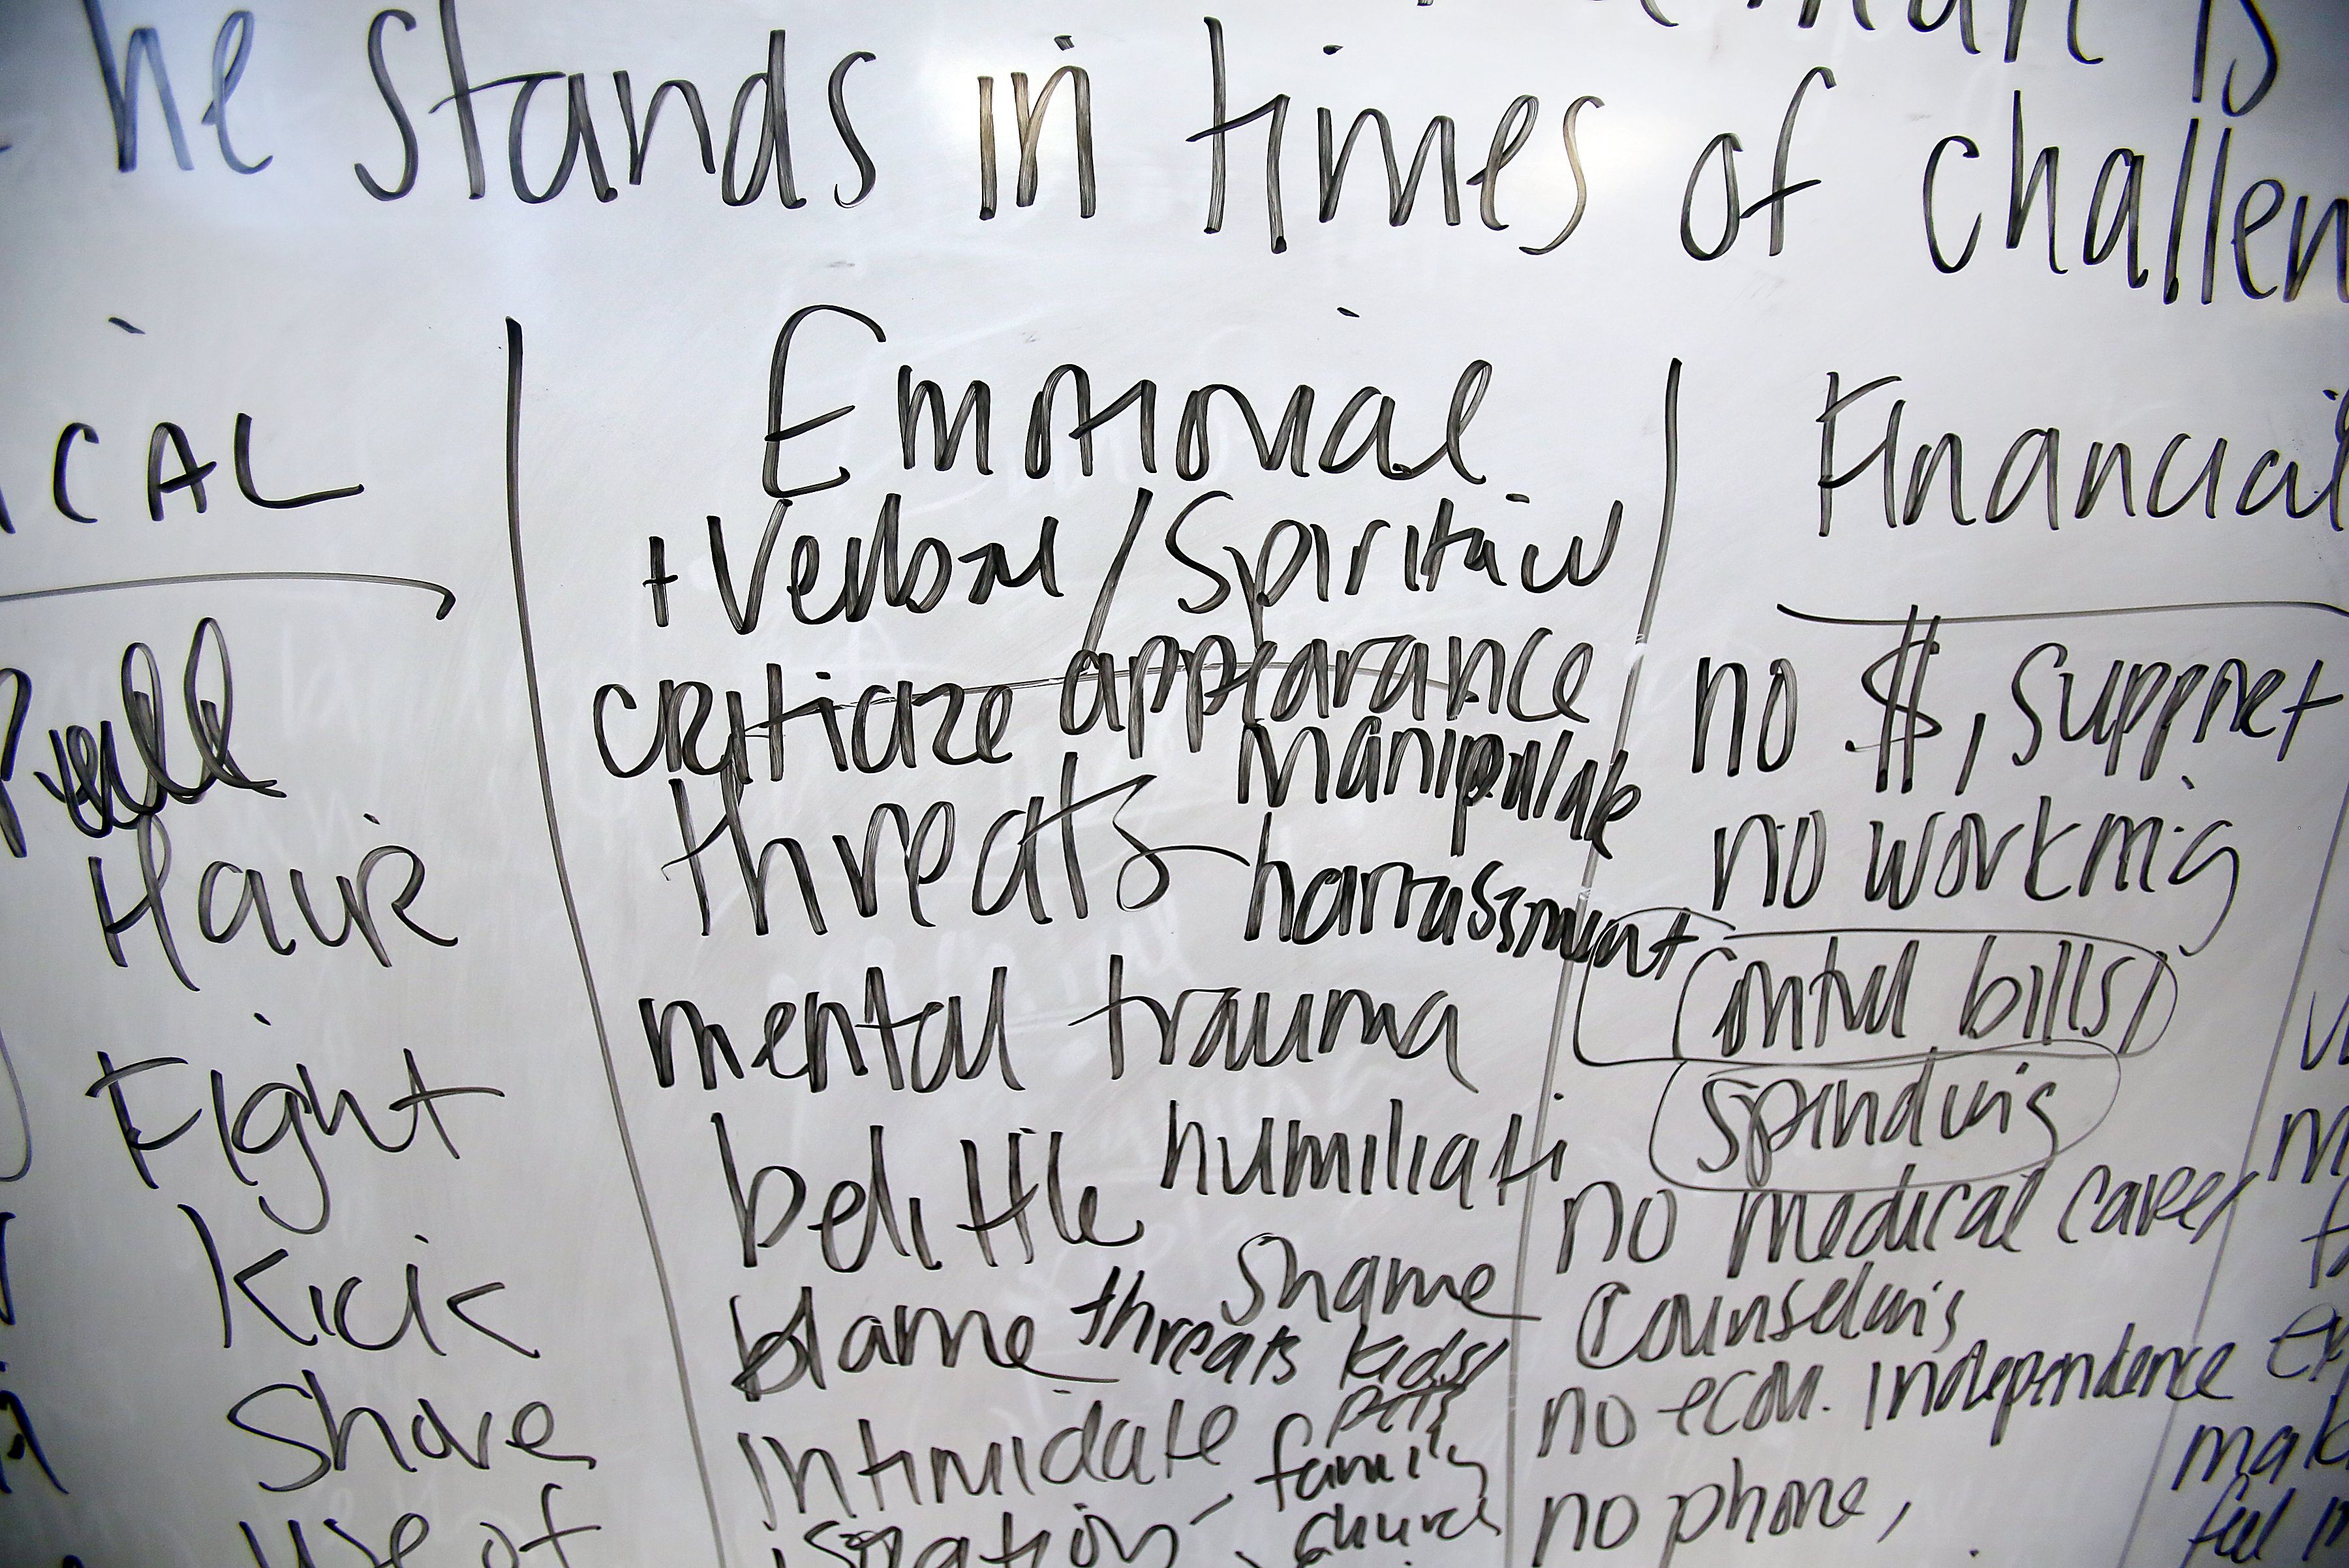 is
he stands in times of challen
ICAL
Pull
Hair
Fight
Kick
Shove
use of
Emotional
+ Verbal / Spiritual
critiaze appearance
manipulate
threats harrassment
mental trauma
belittle humiliati
shame
blame threats kids/
pets
intimidate family
isolation church
Financial
no $, support
no working
control bills/
spending
no medical care/
counseling
no econ. independence
no phone,
mak
feel